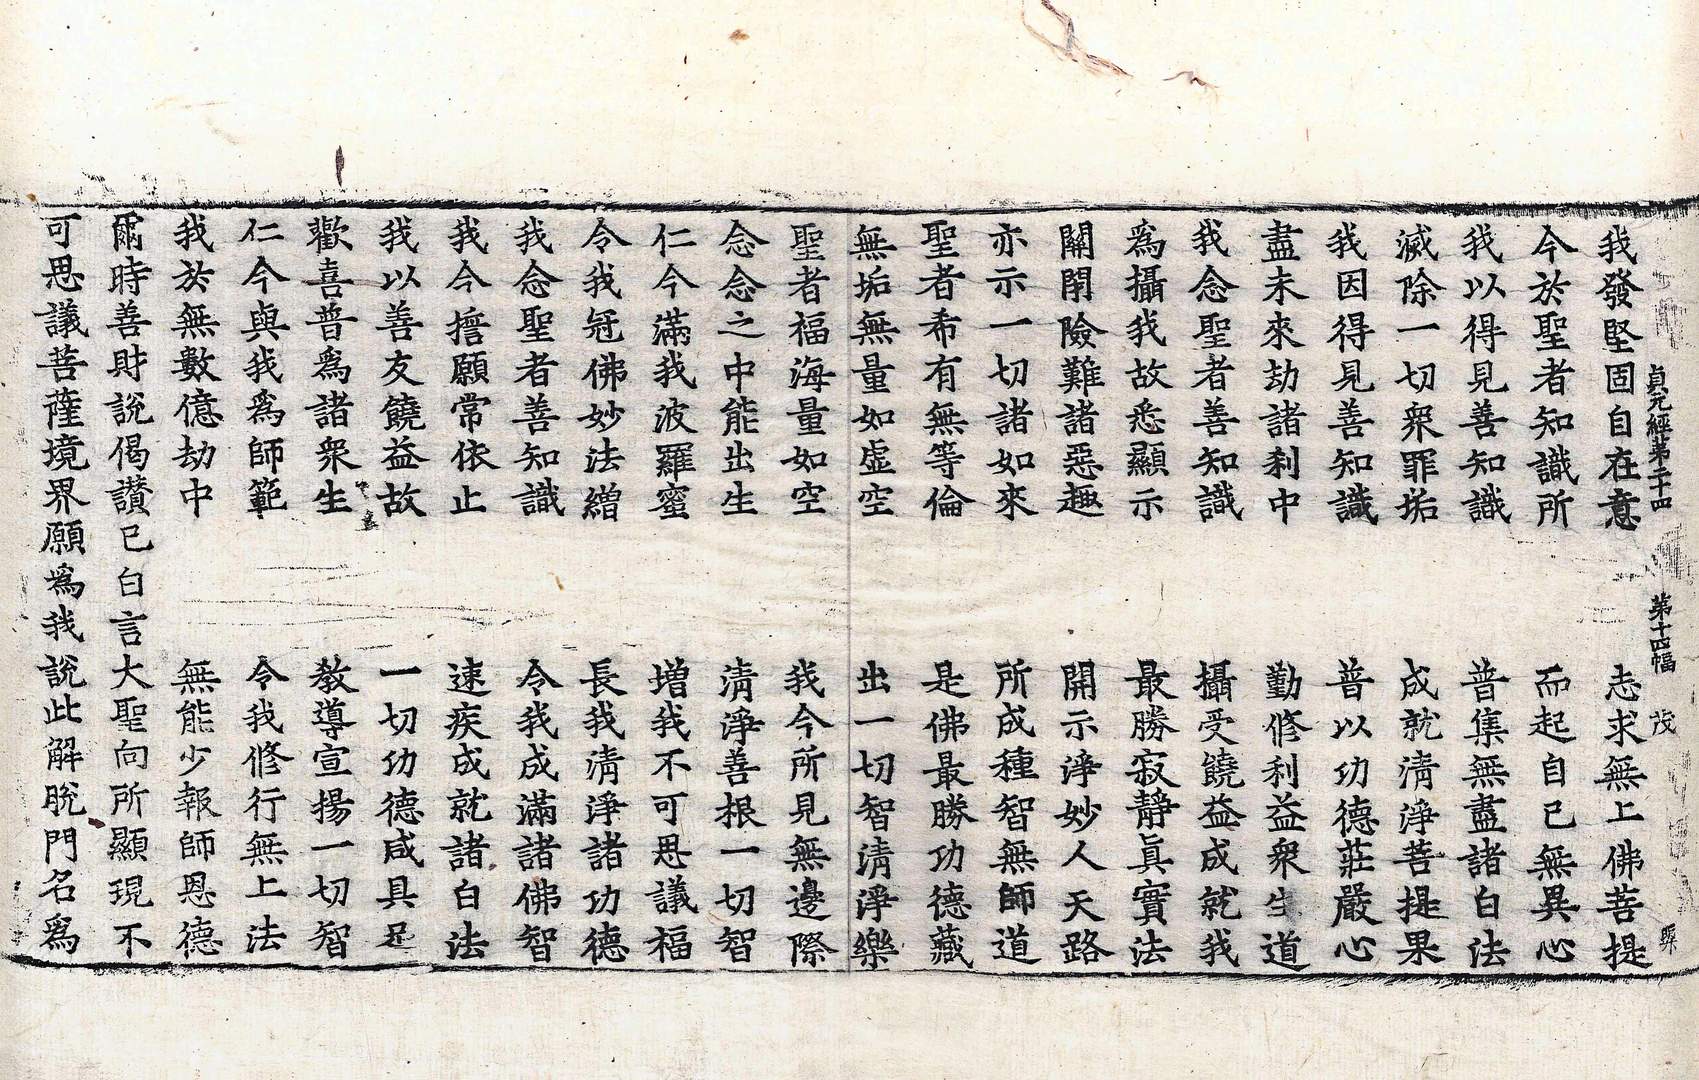 貞元經第二十四　第十四幅　茂
我發堅固自在意　志求無上佛菩提
今於聖者知識所　而起自已無異心
我以得見善知識　普集無盡諸白法
滅除一切衆罪垢　成就淸淨菩提果
我因得見善知識　普以功德莊嚴心
盡未來劫諸刹中　勤修利益衆生道
我念聖者善知識　攝受饒益成就我
爲攝我故悉顯示　最勝寂靜眞實法
關閉險難諸惡趣　開示淨妙人天路
亦示一切諸如來　所成種智無師道
聖者希有無等倫　是佛最勝功德藏
無垢無量如虛空　出一切智淸淨樂
聖者福海量如空　我今所見無邊際
念念之中能出生　淸淨善根一切智
仁今滿我波羅蜜　增我不可思議福
令我冠佛妙法繒　長我淸淨諸功德
我念聖者善知識　令我成滿諸佛智
我今擔願常依止　速疾成就諸白法
我以善友饒益故　一切功德咸具足
歡喜普爲諸衆生　敎導宣揚一切智
仁今與我爲師範　令我修行無上法
我於無數億劫中　無能少報師恩德
爾時善財說偈讃已白言大聖向所顯現不
可思議菩薩境界願爲我說此解脫門名爲